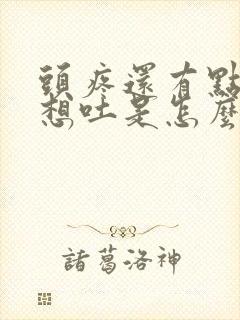 頭疼還有點
想吐是怎麼
諸葛洛神